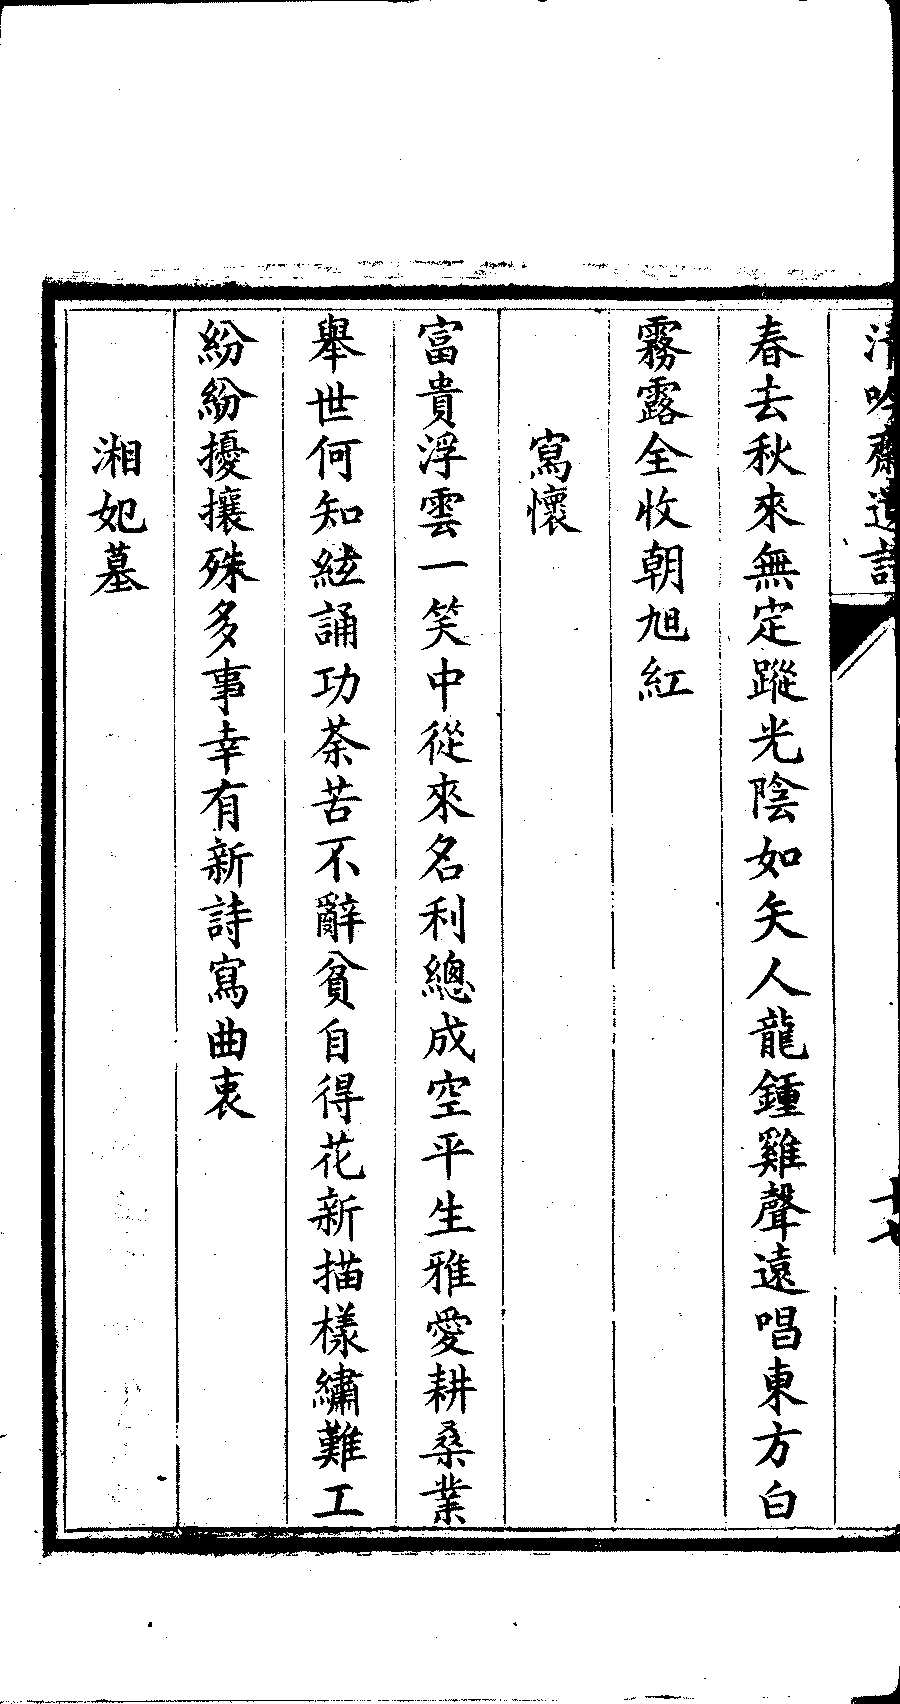 清吟齋遺詩
十七
春去秋來無定蹤光陰如矢人龍鍾雞聲遠唱東方白
霧露全收朝旭紅
寫懷
富貴浮雲一笑中從來名利總成空平生雅愛耕桑業
舉世何知絃誦功荼苦不辭貧自得花新描樣繡難工
紛紛擾攘殊多事幸有新詩寫曲衷
湘妃墓